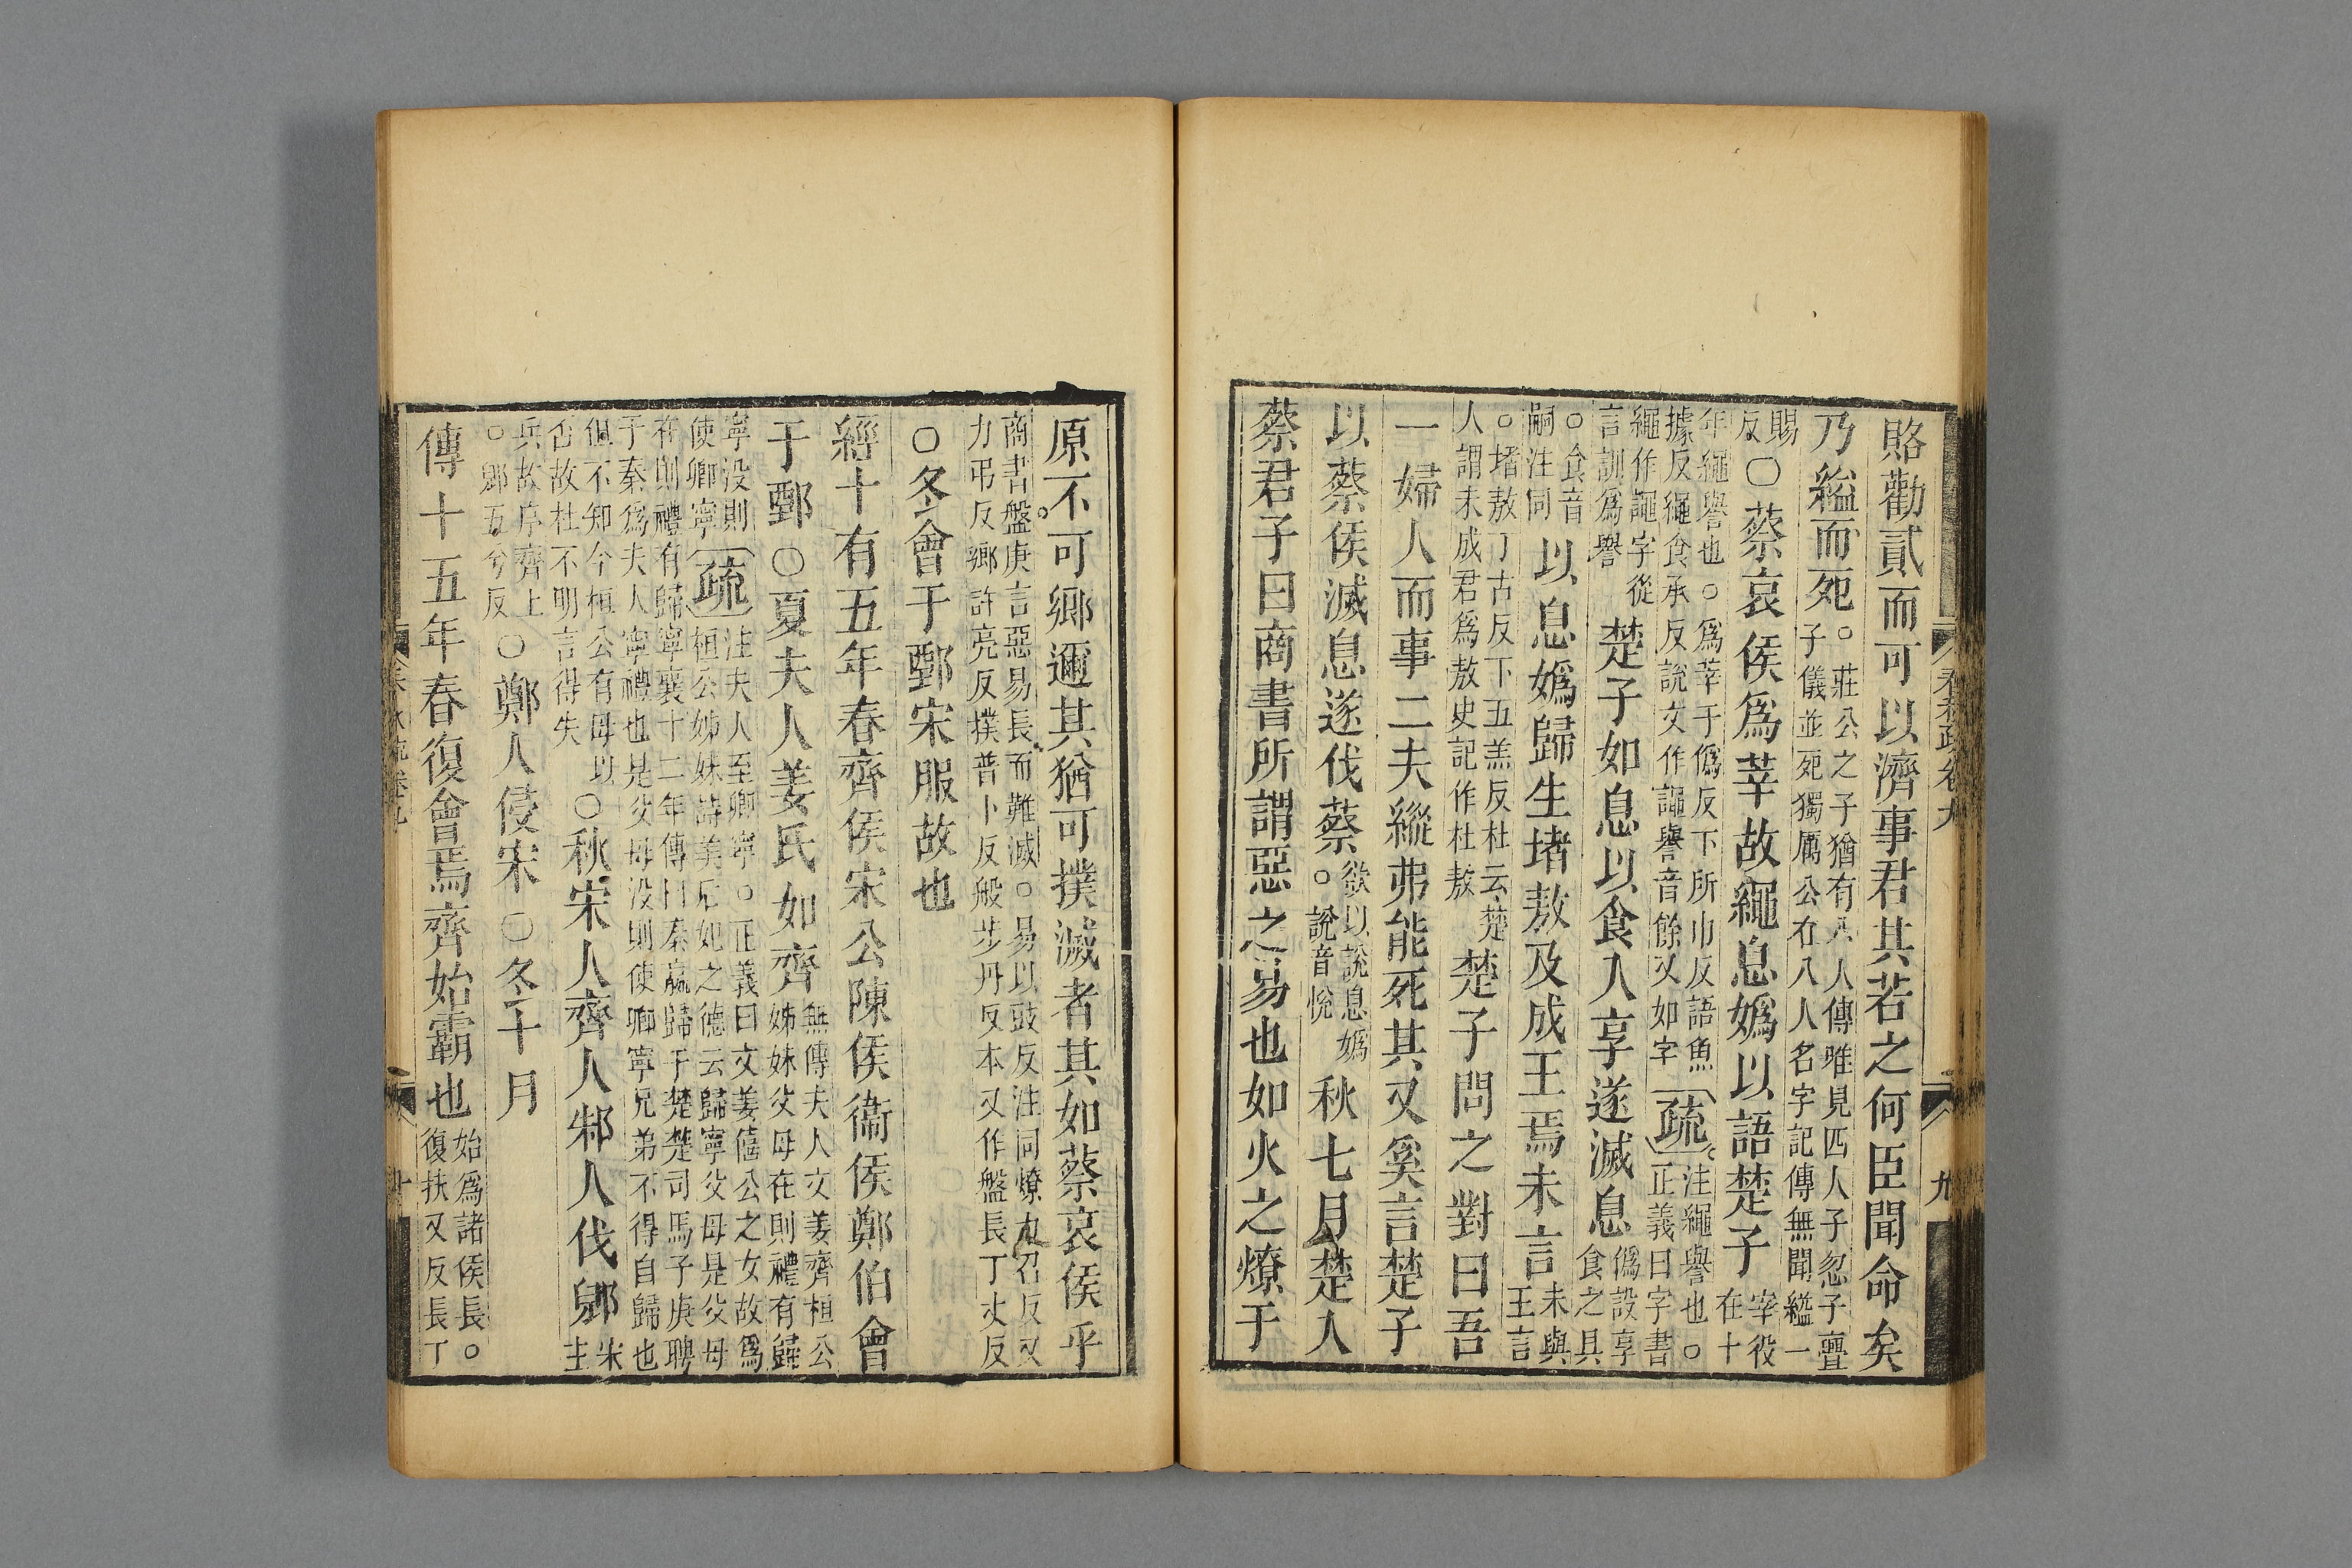 賂勸貳而可以濟事君其若之何臣聞命矣
乃縊而死。莊公之子猶有八人傳唯見四人子忽子亹
子儀並死獨厲公在八人名字記傳無聞縊一
賜
反○蔡哀侯爲莘故繩息媯以語楚子莘役
在十
年繩譽也○爲莘于僞反下所巾反語魚
據反繩食承反說文作譝譽音餘又如字疏注繩譽也○
正義曰字書
繩作譝字從
言訓爲譽楚子如息以食入享遂滅息僞設享
食之具
○食音
嗣注同以息媯歸生堵敖及成王焉未言未與
王言
○堵敖丁古反下五羔反杜云楚
人謂未成君爲敖史記作杜敖楚子問之對曰吾
一婦人而事二夫縱弗能死其又奚言楚子
以蔡侯滅息遂伐蔡欲以說息媯
。說音悅秋七月楚入
蔡君子曰商書所謂惡之易也如火之燎于
原不可鄉邇其猶可撲滅者其如蔡哀侯乎
商書盤庚言惡易長而難滅○易以豉反注同燎力召反又
力弔反鄉許亮反撲普卜反般步丹反本又作盤長丁丈反
○冬會于鄄宋服故也
經十有五年春齊侯宋公陳侯衞侯鄭伯會
于鄄○夏夫人姜氏如齊無傳夫人文姜齊桓公
姊妹父母在則禮有歸
寧沒則
使卿寧疏注夫人至卿寧○正義曰文姜僖公之女故爲
桓公姊妹詩美后妃之德云歸寧父母是父母
在則禮有歸寧襄十二年傳曰秦嬴歸于楚楚司馬子庚聘
于秦爲夫人寧禮也是父母沒則使卿寧兄弟不得自歸也
但不知今桓公有母以
否故杜不明言得失○秋宋人齊人邾人伐郳宋
主
兵故序齊上
○郳五兮反○鄭人侵宋○冬十月
傳十五年春復會焉齊始霸也始爲諸侯長○
復扶又反長丁